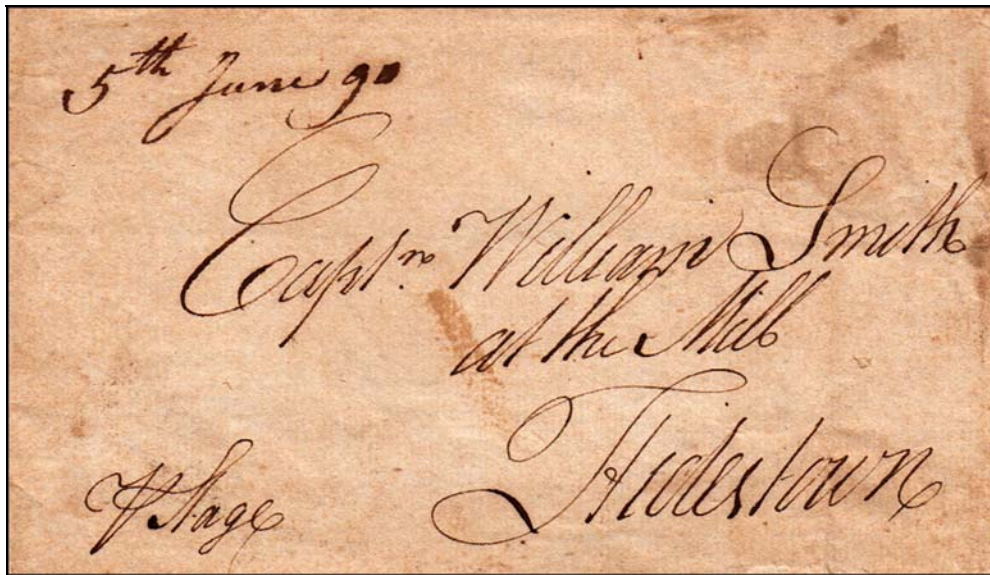 5th June 90
Captn. William Smith
at the Mill
Hidestown
⅌ Stage